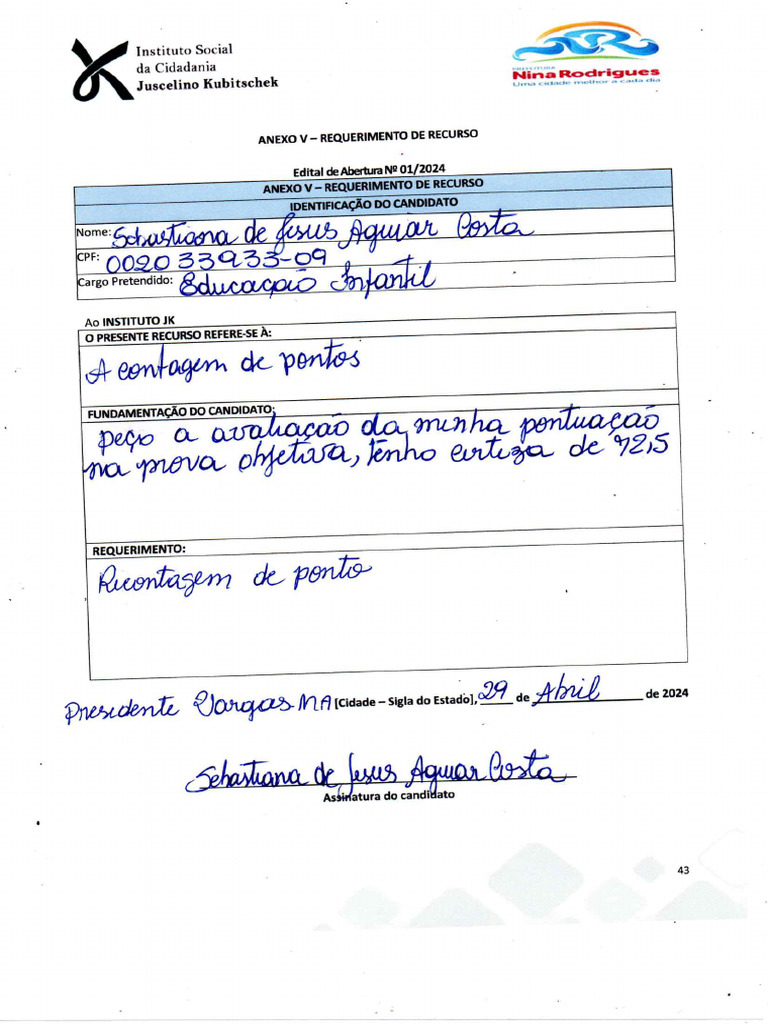 Instituto Social
da Cidadania
Juscelino Kubitschek
PREFEITURA
Nina Rodrigues
Uma cidade melhor a cada dia
ANEXO V – REQUERIMENTO DE RECURSO
Edital de Abertura Nº 01/2024
ANEXO V – REQUERIMENTO DE RECURSO
IDENTIFICAÇÃO DO CANDIDATO
Nome: Sebastiana de Jesus Aguiar Costa
CPF: 002033933-09
Cargo Pretendido: Educação Infantil
Ao INSTITUTO JK
O PRESENTE RECURSO REFERE-SE À:
A contagem de pontos
FUNDAMENTAÇÃO DO CANDIDATO:
peço a avaliação da minha pontuação
na prova objetiva, tenho certeza de 72,5
REQUERIMENTO:
Recontagem de ponto
Presidente Vargas-MA [Cidade – Sigla do Estado], 29 de Abril de 2024
Sebastiana de Jesus Aguiar Costa
Assinatura do candidato
43